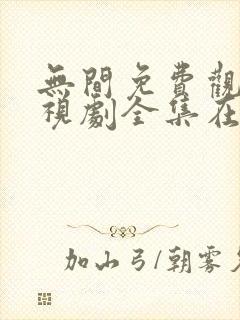 無間免費觀
視劇全集在
加山弓/朝霧